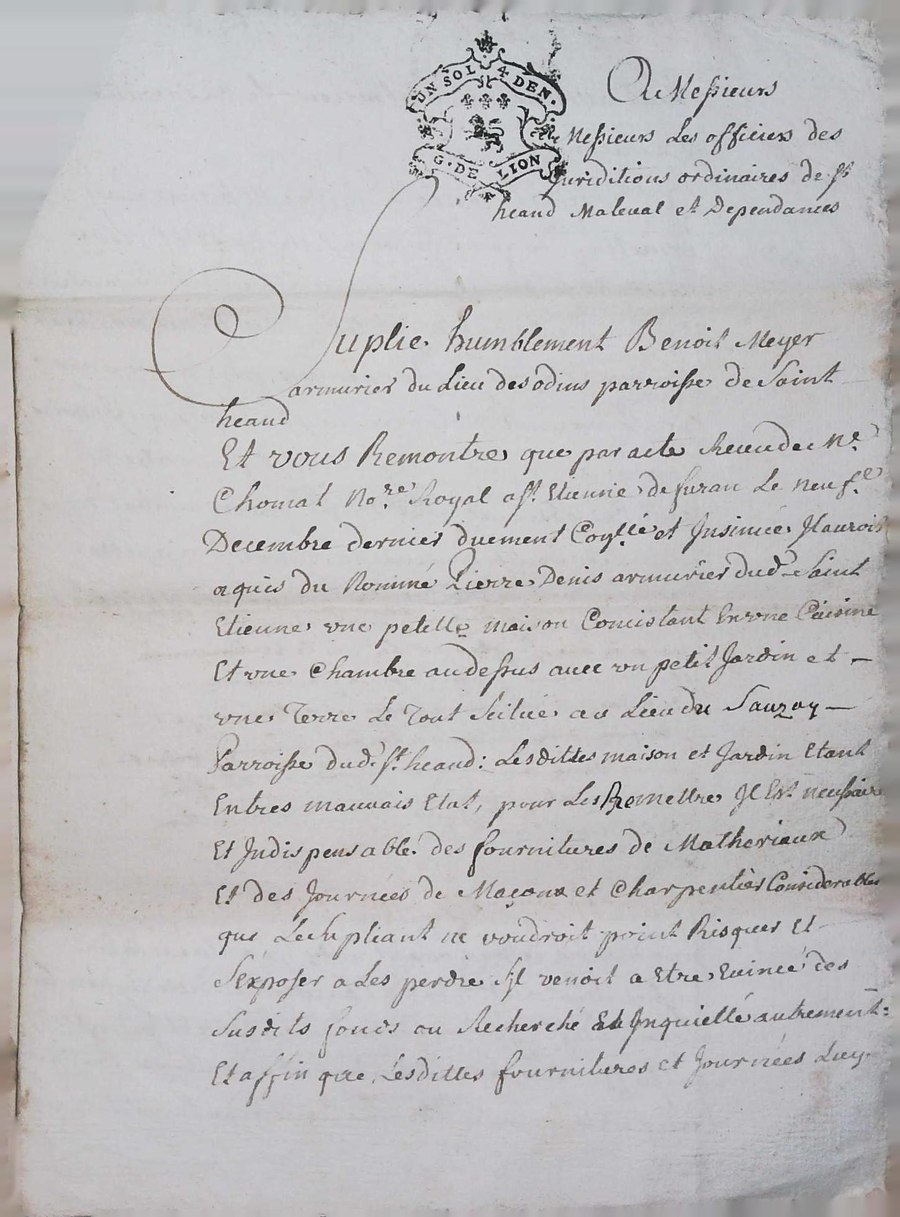 UN SOL 4 DEN.
G. DE LION
A Messieurs
Messieurs Les officiers des
Juriditions ordinaires de St
heand Maleval et Dependances
Suplie humblement Benoit Meyer
armurier du Lieu des odins parroisse de Saint
heand
Et vous Remontre que par acte Receu de Me
Chomat No.re Royal a St. Etienne de furan Le neuf e
Decembre dernier duement Con.llé et Insinüée Il auroit
aquis du Nommé Pierre Denis armurier dud. Saint
Etienne une petitte maison Concistant En une Cuisine
Et une Chambre au dessus avec un petit Jardin et
une Terre Le Tout Scitué au Lieu du Sauzay
Parroisse dud. St. heand: Lesdittes maison et Jardin Etant
Entres mauvais Etat, pour Les Remettre Il Est necessaire
Et Indispensable des fournitures de Matheriaux
Et des Journées de Maçons et Charpentier Considerables
que Le Supliant ne voudroit point Risquer Et
S'Exposer a Les perdre S'il venoit a Etre Evincé des
Susdits fonds ou Recherché Et Inquietté autrement:
Et affin que Lesdittes fournitures et Journées Luy